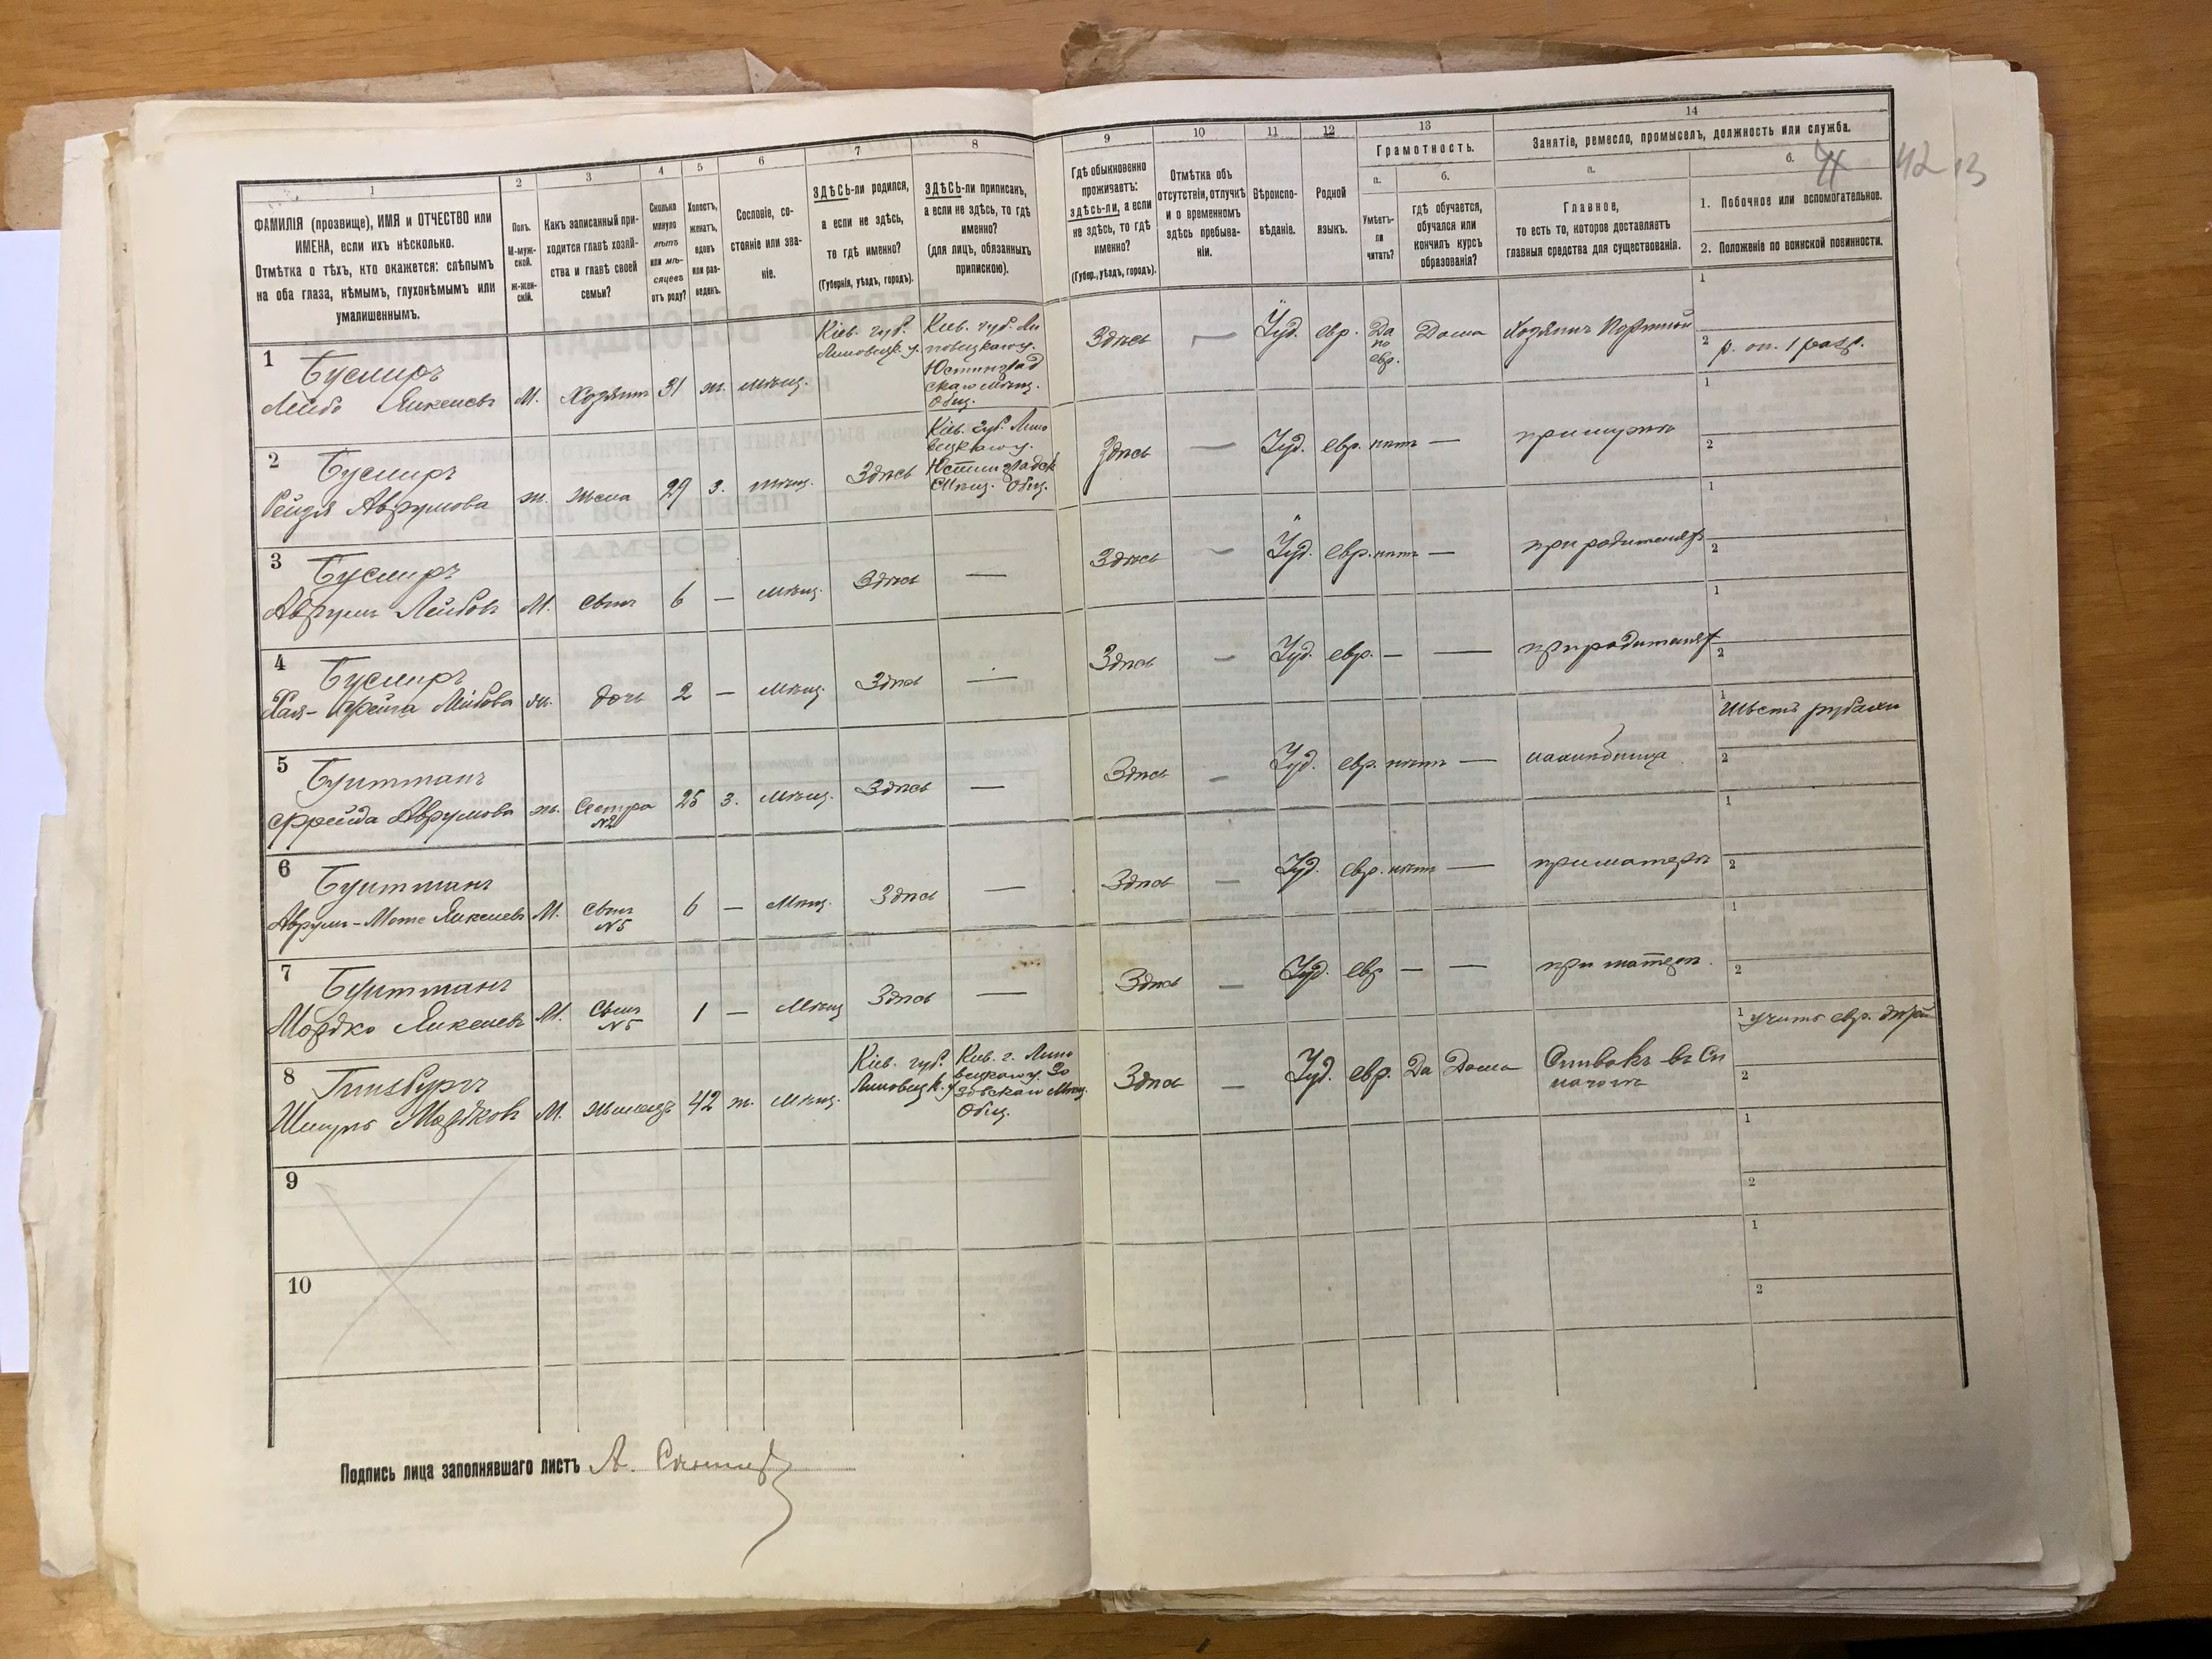 1
ФАМИЛІЯ (прозвище), ИМЯ и ОТЧЕСТВО или
ИМЕНА, если ихъ нѣсколько.
Отмѣтка о тѣхъ, кто окажется: слѣпымъ
на оба глаза, нѣмымъ, глухонѣмымъ или
умалишеннымъ.
2
Полъ.
М-муж-
ской.
Ж-жен-
скій.
3
Какъ записанный при-
ходится главѣ хозяй-
ства и главѣ своей
семьи?
4
Сколько
минуло
лѣтъ
или мѣ-
сяцевъ
отъ роду?
5
Холостъ,
женатъ,
вдовъ
или раз-
веденъ.
6
Сословіе, со-
стояніе или зва-
ніе.
7
ЗДѢСЬ-ли родился,
а если не здѣсь,
то гдѣ именно?
(Губернія, уѣздъ, городъ).
8
ЗДѢСЬ-ли приписанъ,
а если не здѣсь, то гдѣ
именно?
(для лицъ, обязанныхъ
припискою).
9
Гдѣ обыкновенно
проживаетъ:
здѣсь-ли, а если
не здѣсь, то гдѣ
именно?
(Губер., уѣздъ, городъ).
10
Отмѣтка объ
отсутствіи, отлучкѣ
и о временномъ
здѣсь пребыва-
ніи.
11
Вѣроиспо-
вѣданіе.
12
Родной
языкъ.
13
Грамотность.
а.
Умѣетъ-
ли
читать?
б.
гдѣ обучается,
обучался или
кончилъ курсъ
образованія?
14
Занятіе, ремесло, промыселъ, должность или служба.
а.
Главное,
то есть то, которое доставляетъ
главныя средства для существованія.
б.
1. Побочное или вспомогательное.
2. Положеніе по воинской повинности.
42 13
1
Бусмиръ
Лейбо Янкелевъ
М. Хозяинъ 31 ж. мѣщ.
Кіев. губ.
Липовецк. у.
Кіев. губ. Ли
повецкаго у.
Юстинград
скаго мѣщ.
Общ.
Здѣсь — Іуд. евр. Да
по
евр.
Дома Хозяинъ Портной
1
2 р. оп. 1 разр.
2
Бусмиръ
Рейзя Аврумова
ж. жена 29 з. мѣщ. Здѣсь
Кіев. губ. Липо
вецкаго у.
Юстинградск
мѣщ. Общ.
Здѣсь — Іуд. евр. нѣтъ — при мужѣ
1
2
3
Бусмиръ
Аврумъ Лейбовъ
М. сынъ 6 — мѣщ. Здѣсь —
Здѣсь — Іуд. евр. нѣтъ — при родителяхъ
1
2
4
Бусмиръ
Хая-Фейга Лейбова
ж. дочь 2 — мѣщ. Здѣсь —
Здѣсь — Іуд. евр. — — при родителях
1
2
5
Бритманъ
Фрейда Аврумова
ж. Сестра
№2
25 з. мѣщ. Здѣсь —
Здѣсь — Іуд. евр. нѣтъ —
1 Шьетъ рубахи
2
6
Бритманъ
Аврумъ-Мота Янкелевъ
М. сынъ
№5
6 — мѣщ. Здѣсь —
Здѣсь — Іуд. евр. нѣтъ — при матери
1
2
7
Бритманъ
Мордко Янкелевъ
М. сынъ
№5
1 — Мѣщ Здѣсь —
Здѣсь — Іуд. евр — — при матери.
1
2
8
Гинзбургъ
Мордковъ
М. жилецъ 42 ж. мѣщ.
Кіев. губ.
Липовецк. у
Кіев. г. Липо
вецкаго у.
мѣщ.
Общ.
Здѣсь — Іуд. евр. Да Дома
1 учитъ евр. дѣтей
2
9
1
2
10
1
2
Подпись лица заполнявшаго листъ А.